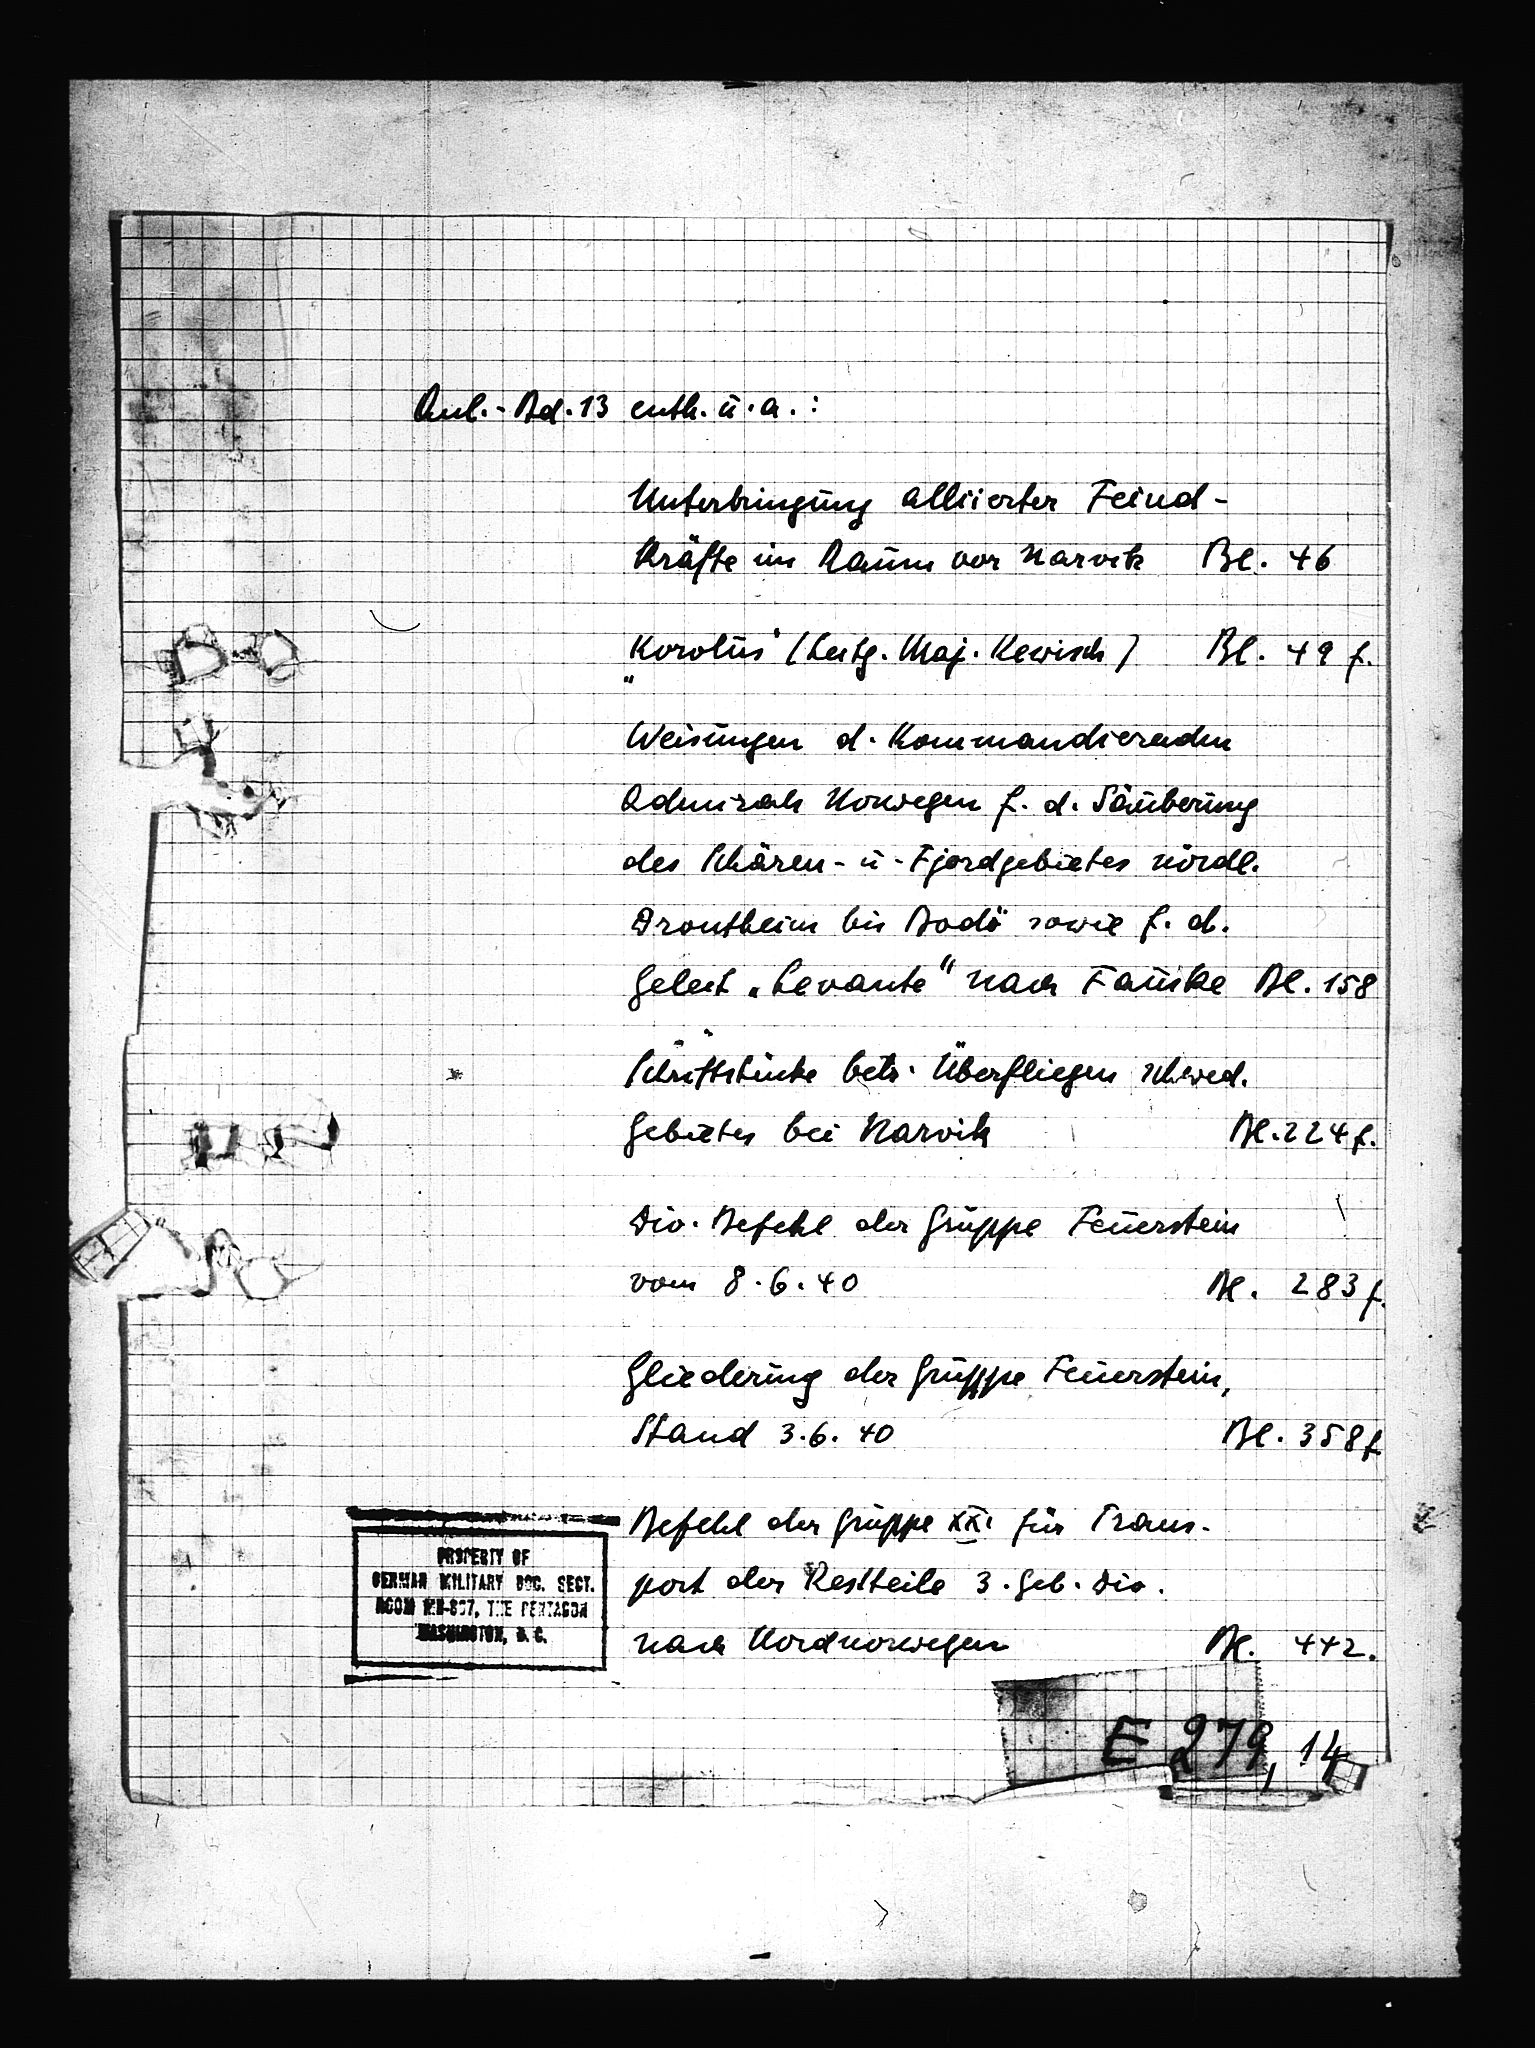 Anl.-Bd. 13 enth. u. a.:
Unterbringung alliierter Feind-
Kräfte im Raum vor Narvik Bl. 46
„Korolus" (Lustg. Maj. Kewisch) Bl. 49 f.
Weisungen d. Kommandierenden
Admirals Norwegen f. d. Säuberung
des Schären- u. Fjordgebietes nördl.
Drontheim bis Bodö sowie f. d.
Geleit „Levante" nach Fauske Bl. 158
Schriftstücke betr. Überfliegen schwed.
Gebietes bei Narvik Bl. 224 f.
Div. Befehl der Gruppe Feuerstein
vom 8.6.40 Bl. 283 f.
Gliederung der Gruppe Feuerstein,
Stand 3.6.40 Bl. 358 f.
Befehl der Gruppe XXI für Trans-
port der Restteile 3. Geb. Div.
nach Nordnorwegen Bl. 442.
PROPERTY OF
GERMAN MILITARY DOC. SECT.
ROOM, THE PENTAGON
WASHINGTON, D. C.
E 279, 14